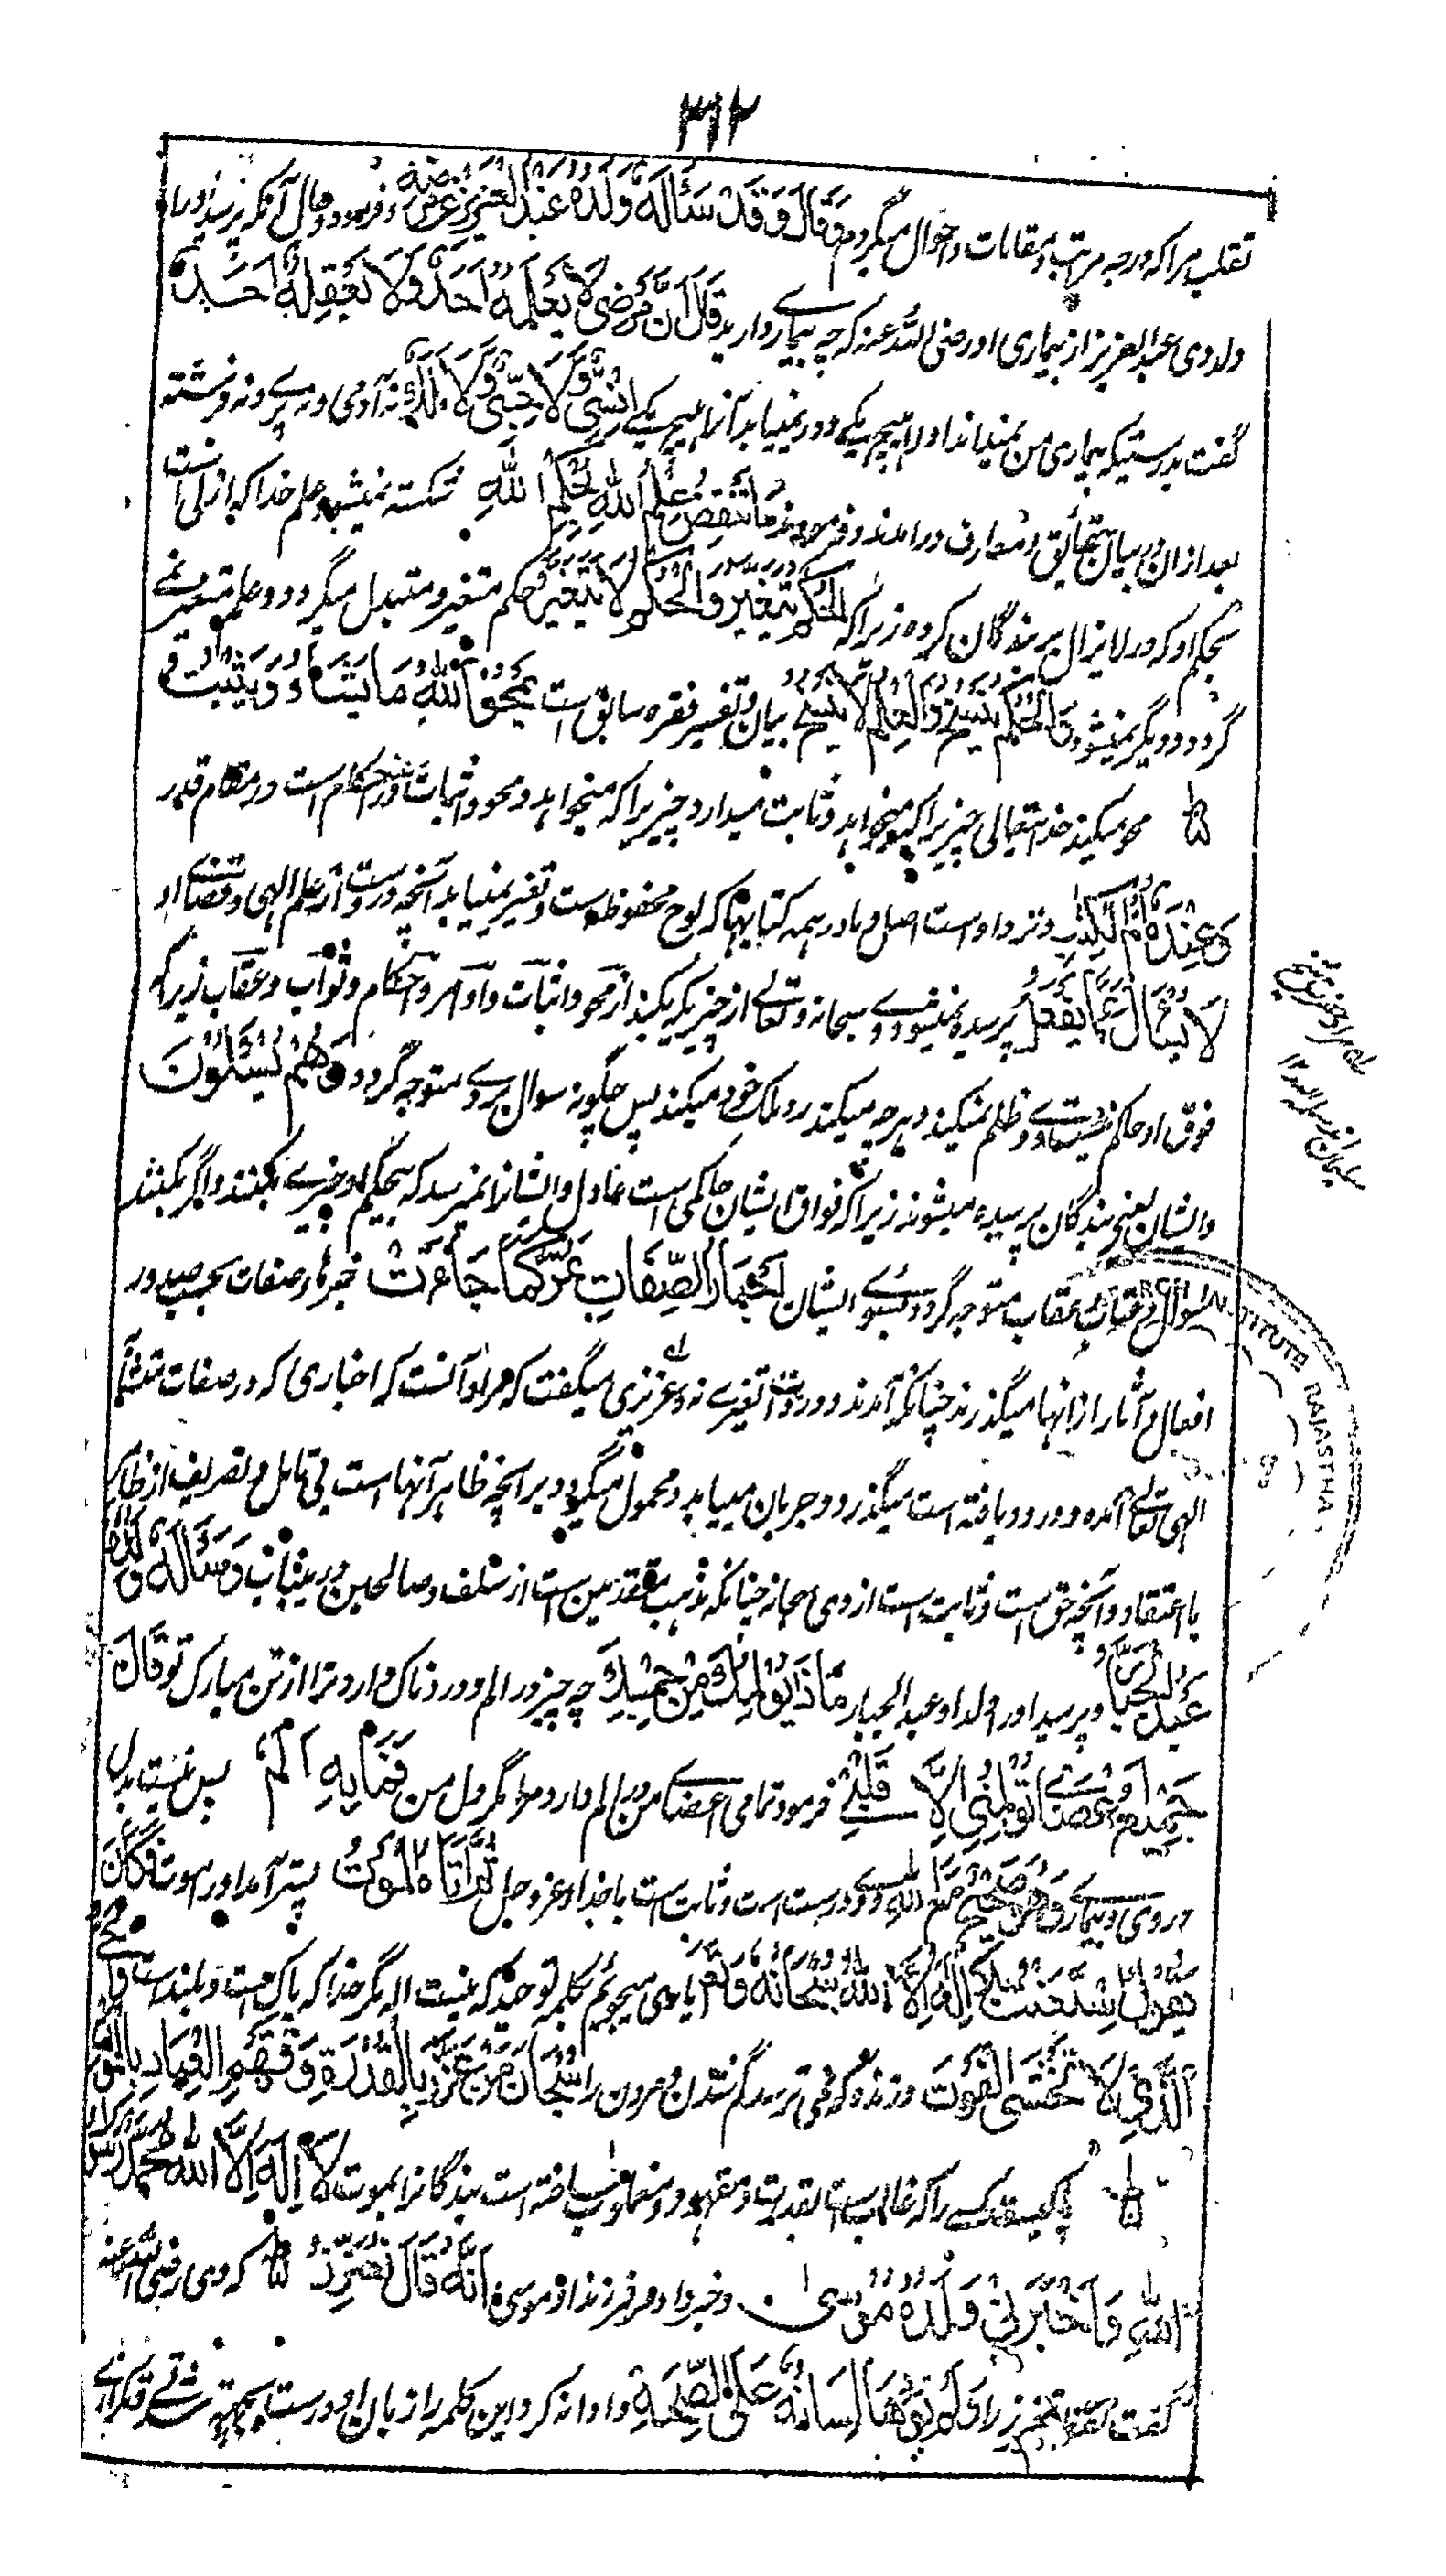 ۳۱۲
تقلب مرا که درجه مرتب و مقامات و احوال میگردم وَقَالَ وَقَدْ سَأَلَهُ وَلَدُهُ عَبْدُ الْعَزِیْزِ عَنْ مَرَضِهِ و فرمود در حال آنکه پرسید او را
ولد وی عبدالعزیز از بیماری او رضی اللّٰه عنه که چه بیماری دارید قَالَ اَنَّ مَرَضِیْ لَا یَعْلَمُهُ اَحَدٌ وَلَا یَعْقِلُهُ اَحَدٌ
گفت بدرستیکه بیماری من نمیداند او را هیچ یکی و در نمییابد آنرا هیچ یکے اِنْسِیٌّ وَلَا جِنِّیٌّ وَلَا مَلَکٌ نه آدمی و نه پری و نه فرشته
بعد ازان در بیان حقائق و معارف در آمدند و فرمودند مَا یَنْقُضُ عِلْمُ اللهِ بِحُکْمِ اللهِ شکسته نمیشود علم خدا که ازلی است
بحکم او که در لایزال بر بندگان کرده زیراکه اَلْحُکْمُ یَتَغَیَّرُ وَالْعِلْمُ لَا یَتَغَیَّرُ حکم متغیر و متبدل میگردد و علم متغیر نمے
گردد و دیگر نمیشود وَالْحُکْمُ یُنْسَخُ وَالْعِلْمُ لَا یُنْسَخُ بیان و تفسیر فقره سابق است یَمْحُو اللهُ مَا یَشَاءُ وَیُثْبِتُ
محو میکند خدایتعالی چیزیرا که میخواهد و ثابت میدارد چیزیرا که میخواهد و محو و اثبات در احکام است در مقام قدر
وَعِنْدَهُ اُمُّ الْکِتَابِ و نزد اوست اصل و مادر همه کتابها که لوح محفوظ است و تغیر نمییابد آنچه دروست از علم الهی و قضاے او
لَا یُسْئَلُ عَمَّا یَفْعَلُ پرسیده نمیشود وے سبحانه و تعالے از چیزیکه میکند از محو و اثبات و اوامر و احکام و ثواب و عقاب زیراکه
فوق او حاکم نیست و وے ظلم نمیکند و هرچه میکند در ملک خود میکند پس چگونه سوال بر وے متوجه گردد وَهُمْ یُسْئَلُوْنَ
و ایشان یعنی بندگان پرسیده میشوند زیراکه فوق ایشان حاکمی است عادل و ایشانرا نمیرسد که بیحکم او چیزے بکنند و اگر بکنند
سوال و عتاب و عقاب متوجه گردد بسوے ایشان اَخْبَارُ الصِّفَاتِ تَمُرُّ کَمَا جَاءَتْ خبرها در صفات بحسب صدور
افعال و آثار از آنها میگذرند چنانکه آمدند و در ذات تغیرے نه و عزیزی میگفت که مراد آنست که اخباری که در صفات
الهی تعالے آمده و ورود یافته است میگذرد و جریان مییابد و محمول میگردد بر آنچه ظاهر آنها است بی تامل و تصریف از ظاهر
با اعتقاد و آنچه حق است و ثابت است از وی چنانکه مذهب متقدمین است از سلف و صالحین در ینباب وَسَأَلَهُ وَلَدُهُ
عَبْدُ الْجَبَّارِ و پرسید او را ولد او عبدالجبار مَاذَا یُؤْلِمُکَ مِنْ جِسْمِکَ چه چیز در الم و دردناک دارد ترا از تن مبارک تو قَالَ
جَمِیْعُ اَعْضَائِیْ تُؤْلِمُنِیْ اِلَّا قَلْبِیْ فرمود تمامی اعضاے من در الم دارد مرا مگر دل من فَمَا بِهِ اَلَمٌ پس نیست بدل
دردی و بیماری وَهُوَ صَحِیْحٌ مَعَ اللهِ و وے درست است و ثابت است با خداوند عزوجل ثُمَّ اَتَاهُ الْمَوْتُ پستر آمد او را موت فَکَانَ
یَقُوْلُ اِسْتَعَنْتُ بِلَا اِلٰهَ اِلَّا اللهُ سُبْحَانَهُ وَتَعَالٰی یاری میجویم بکلمه توحید که نیست اله مگر خدا که پاک است و بلند است وَالْحَیِّ
الَّذِیْ لَا یَخْشَی الْفَوْتَ و زنده که نمی ترسد گم شدن و مردن را سُبْحَانَ مَنْ تَعَزَّزَ بِالْقُدْرَةِ وَقَهَرَ الْعِبَادَ بِالْمَوْتِ
پاکیست کسے را که غالب است بقدرت و مقهور و مغلوب ساخته است بندگانرا بموت لَا اِلٰهَ اِلَّا اللهُ مُحَمَّدٌ رَسُوْلُ
اللهِ وَاَخْبَرَنِیْ وَلَدُهُ مُوْسٰی و خبر داد مر فرزند او موسی اَنَّهُ قَالَ تَعَزَّزَ که وی رضی اللّٰه عنه
گفت لفظ تعزز را وَلَمْ یُؤَدِّهَا لِسَانُهُ عَلَی الصِّحَّةِ و ادا نه کرد این کلمه را زبان او درست
RCH INSTITUTE RAJASTHA